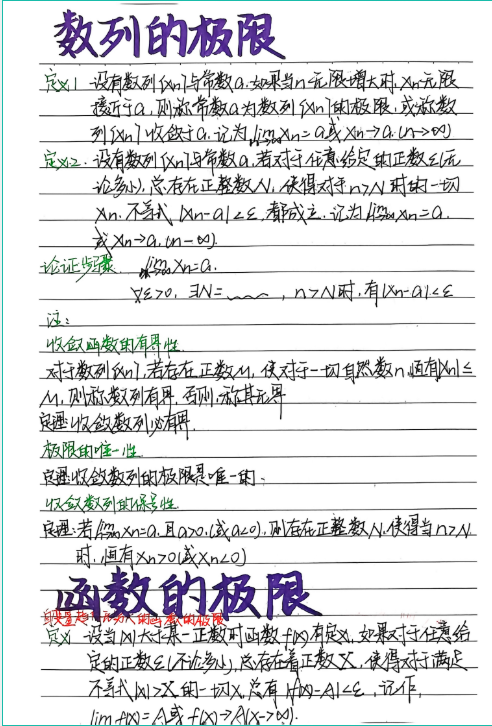 数列的极限
定义1 设有数列{xn}与常数a.如果当n无限增大时,xn无限
接近于a,则称常数a为数列{xn}的极限,或称数
列{xn}收敛于a,记为lim xn=a或xn→a.(n→∞)
定义2.设有数列{xn}与常数a,若对于任意给定的正数ε(无
论多小),总存在正整数N,使得对于n>N时的一切
xn.不等式|xn-a|<ε.都成立.记为lim xn=a.
或xn→a.(n→∞).
论证步骤 lim xn=a.
∀ε>0,∃N= ,n>N时,有|xn-a|<ε
注:
收敛函数的有界性
对于数列{xn},若存在正数M,使对于一切自然数n,恒有|xn|≤
M,则称数列有界,否则,称其无界
定理:收敛数列必有界.
极限的唯一性
定理:收敛数列的极限是唯一的.
收敛数列的保号性
定理:若lim xn=a.且a>0.(或a<0),则存在正整数N.使得当n>N
时,恒有xn>0(或xn<0)
函数的极限
自变量趋于无穷大时函数的极限
定义1 设当|x|大于某一正数时函数f(x)有定义,如果对于任意给
定的正数ε(不论多小),总存在着正数X,使得对于满足
不等式|x|>X的一切x,总有|f(x)-A|<ε,记作,
lim f(x)=A或f(x)→A(x→∞).